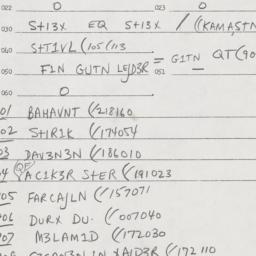 022 0 023 0
030 S+13X EQ S+13X / ((KAMASTN
040 S+T1VL (105(113
050 FIN GUTN LEJD3R 051 = G1TN QT(90
060 0
01 BAHAVNT ((218160
02 S+1R1K ((174054
03 DAV3N3N ((186010
04 (QF) YAC1K3R STER ((191023
05 FARCAJLN ((157071
06 DURX DU. ((007040
07 M3LAM1D ((172030
((172110